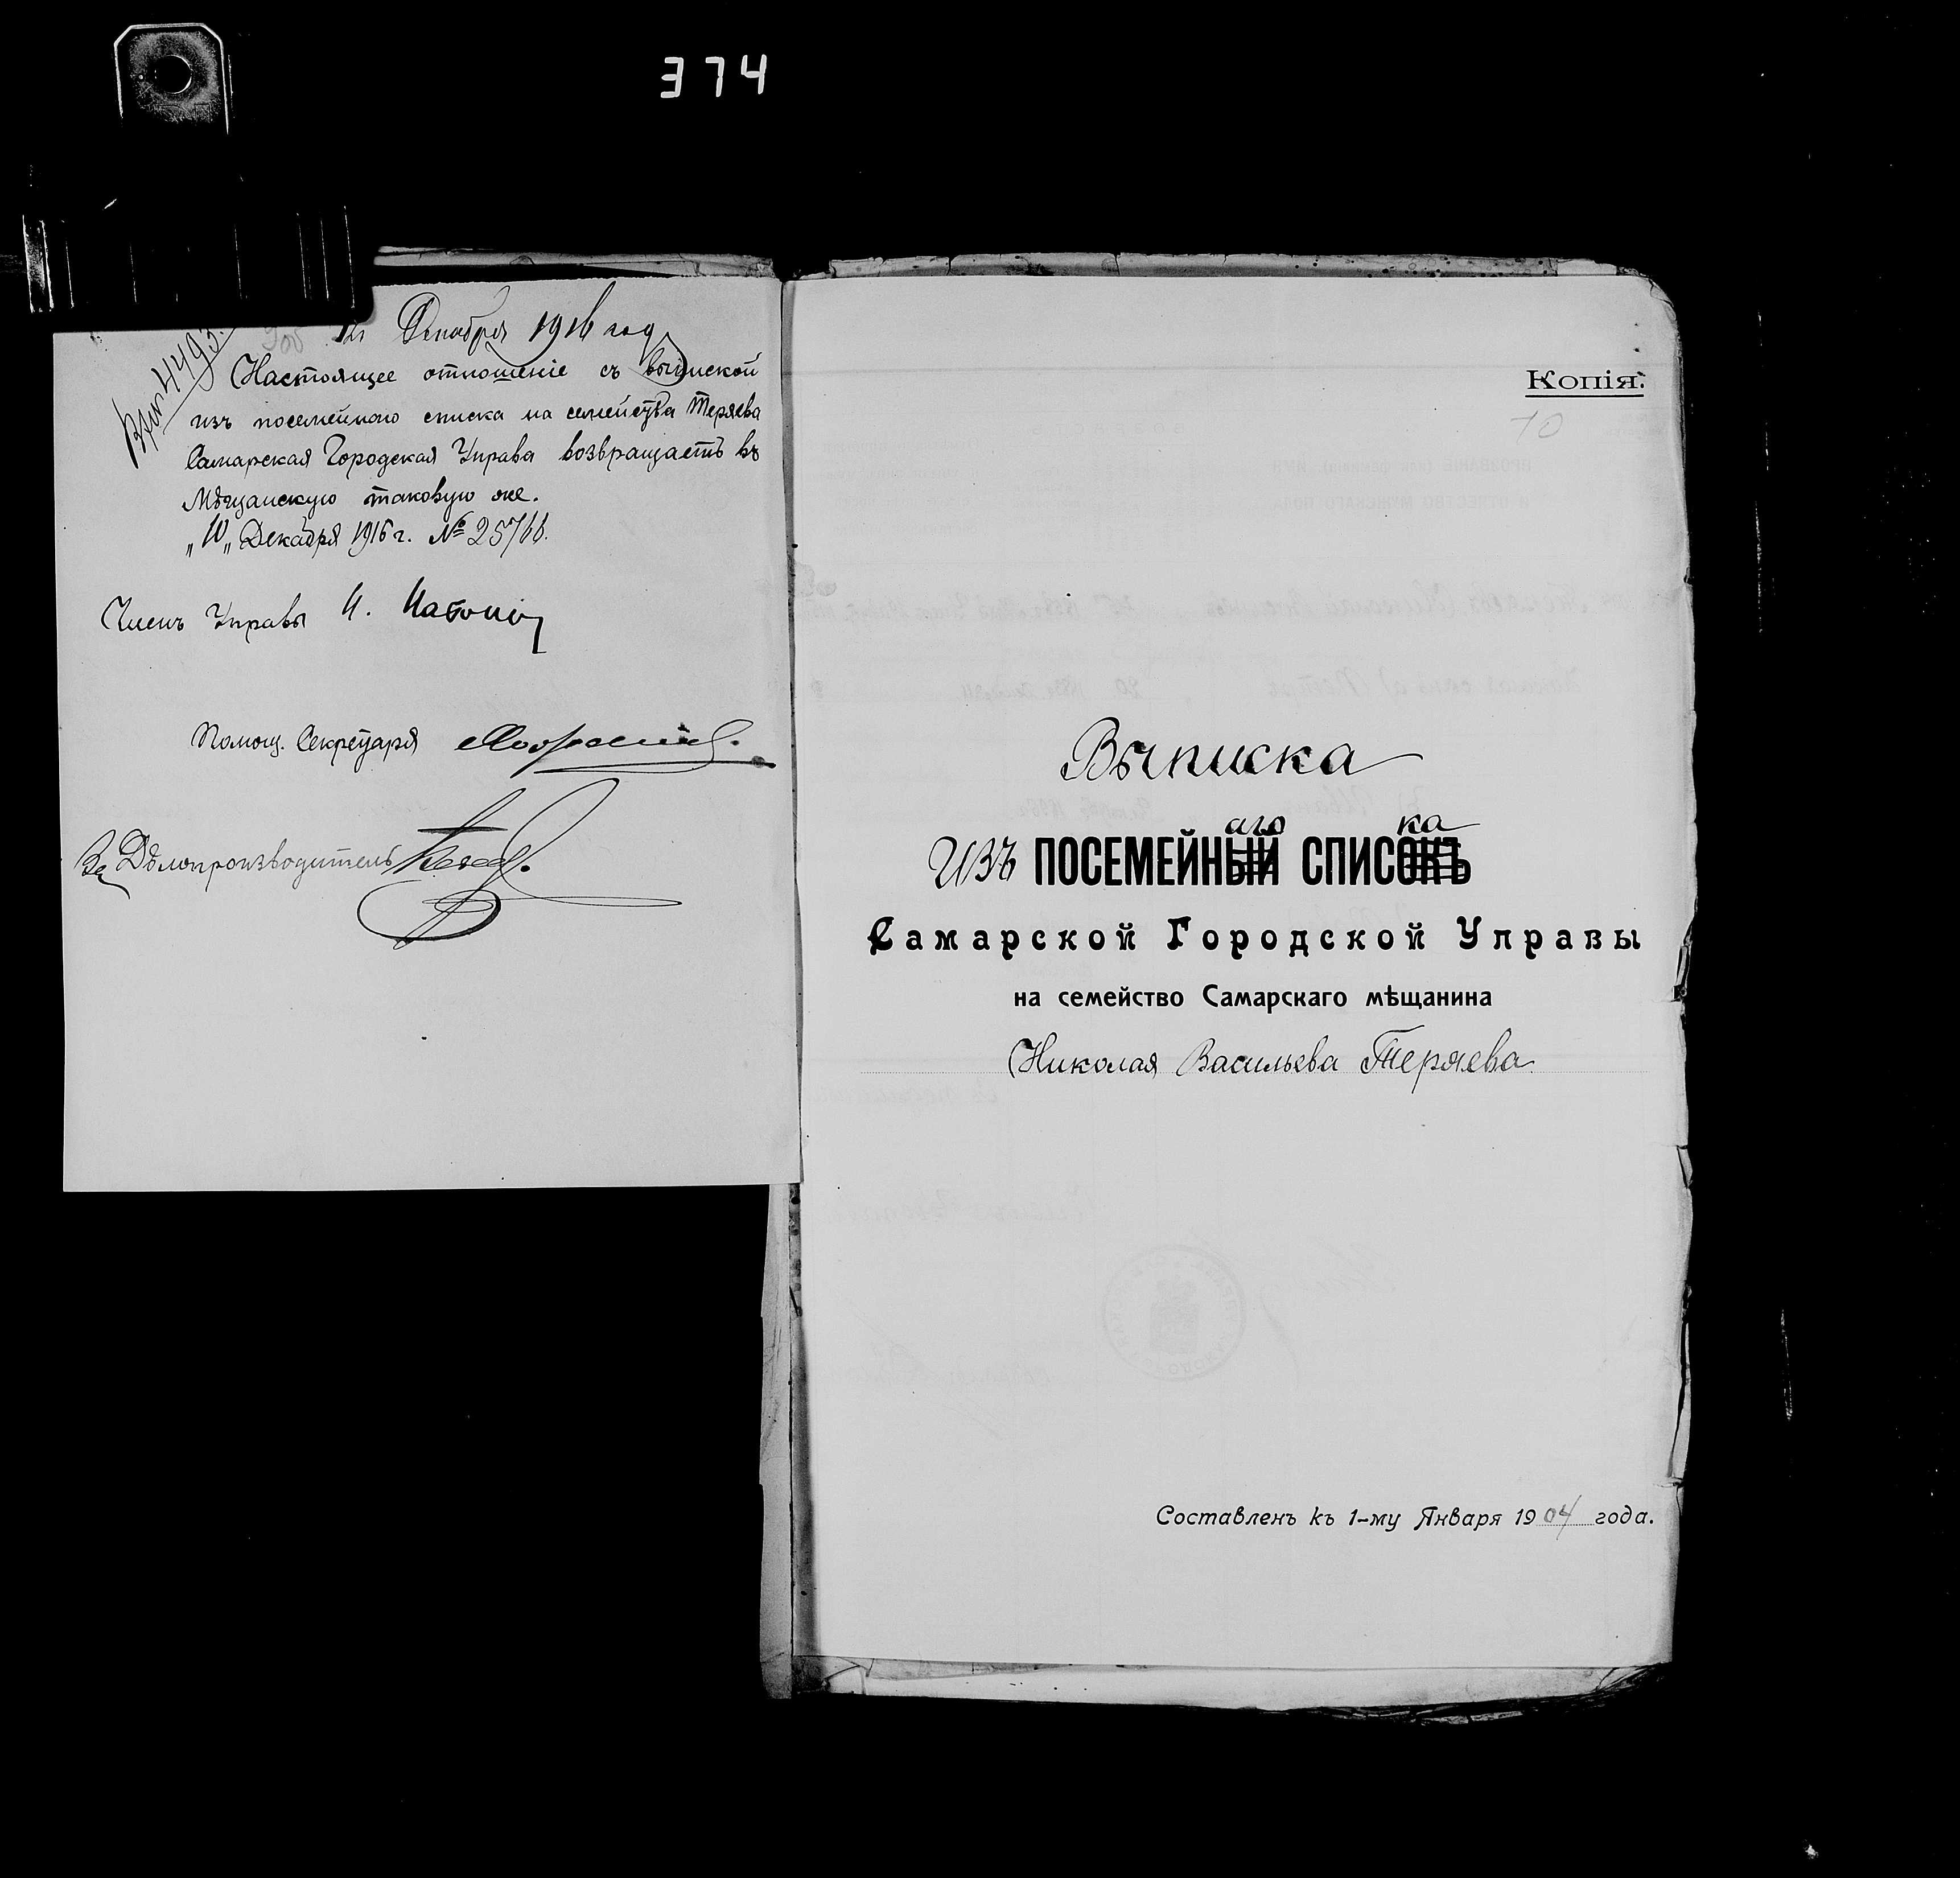 374
Вх. № 4493.
12 Декабря 1916 год
Настоящее отношеніе съ выпиской
изъ посемейнаго списка на семейства Теряева
Самарская Городская Управа возвращаетъ въ
Мѣщанскую таковую же.
„10„ Декабря 1916 г. №
Членъ Управы И.
Помощ. Секретаря
За Дѣлопроизводитель
Копія.
10
Выписка
аго ка
изъ ПОСЕМЕЙНЫЙ СПИСОКЪ
Самарской Городской Управы
на семейство Самарскаго мѣщанина
Николая Васильева Теряева
Составленъ къ 1-му Января 1904 года.